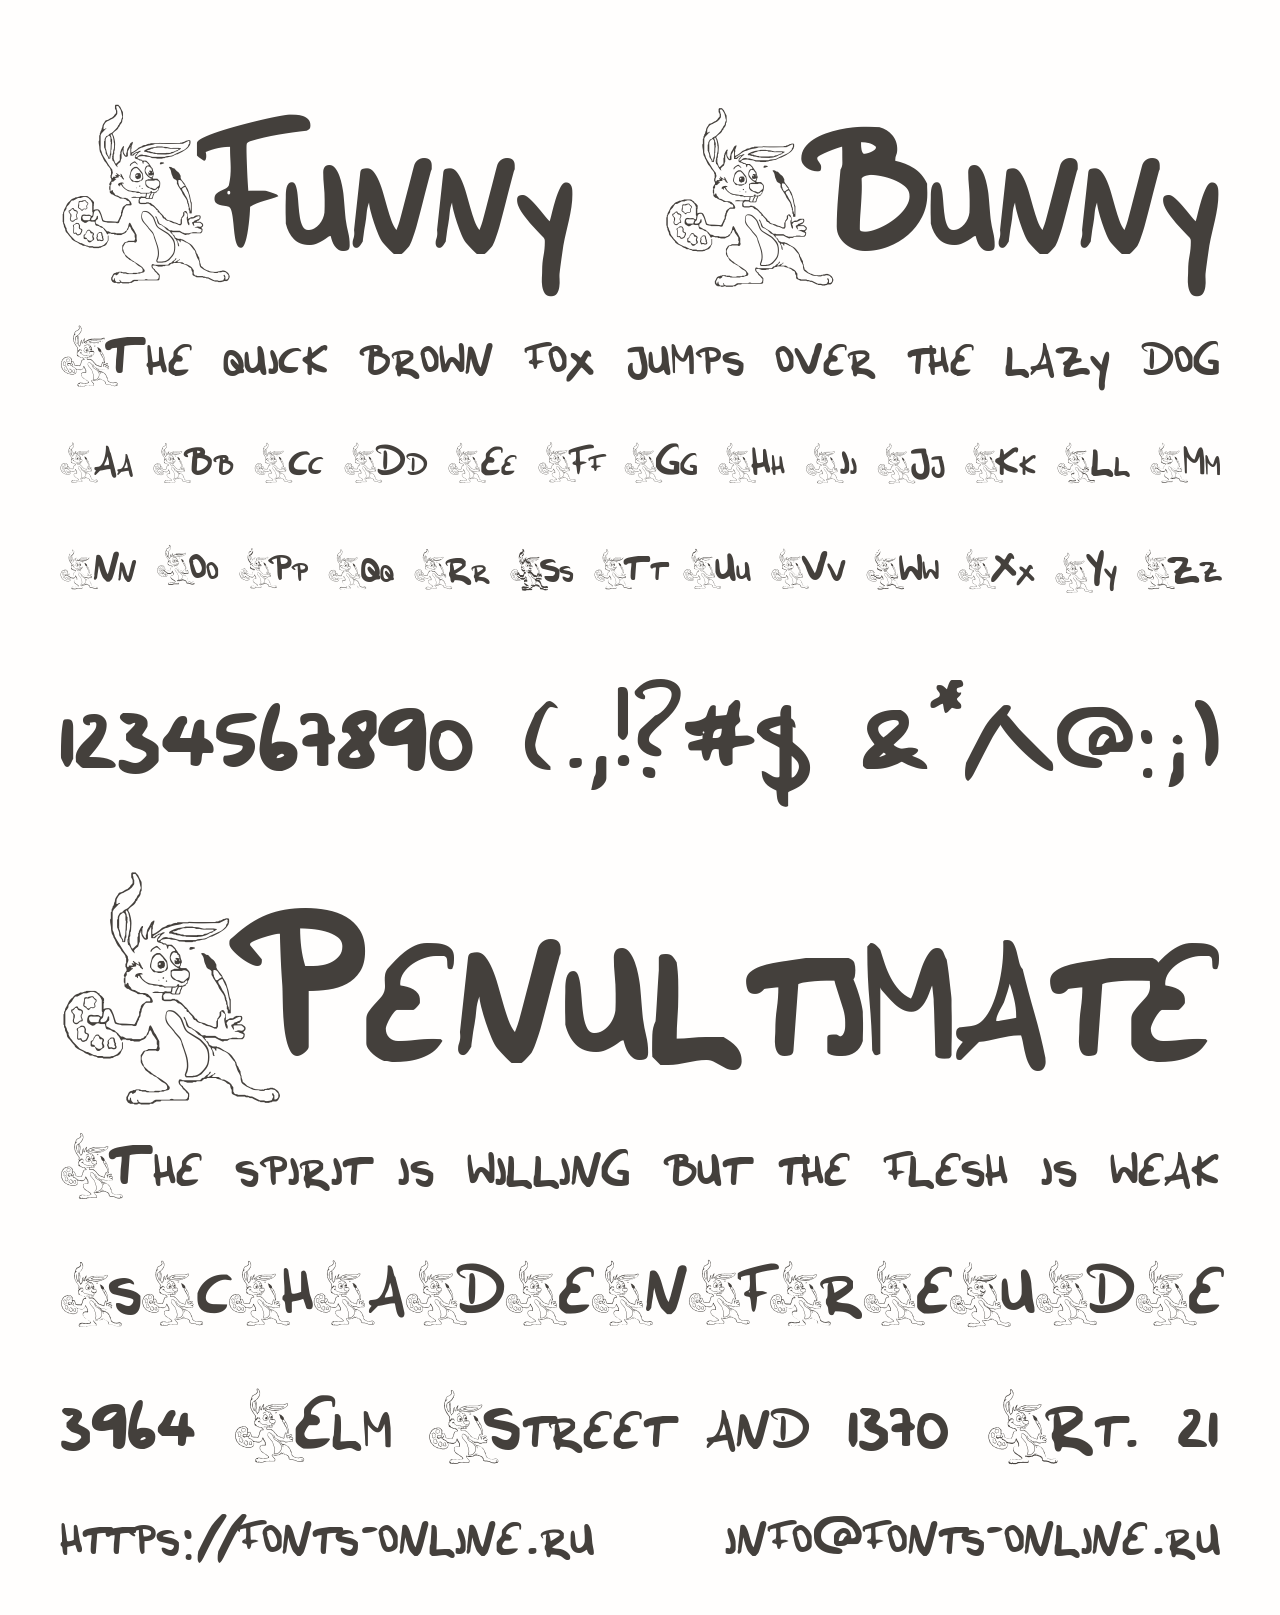 Funny Bunny
The quick brown fox jumps over the lazy dog
Aa Bb Cc Dd Ee Ff Gg Hh Ii Jj Kk Ll Mm
Nn Oo Pp Qq Rr Ss Tt Uu Vv Ww Xx Yy Zz
1234567890 (.,!?#$ &*^@:;)
Penultimate
The spirit is willing but the flesh is weak
SCHADENFREUDE
3964 Elm Street and 1370 Rt. 21
https://fonts-online.ru info@fonts-online.ru